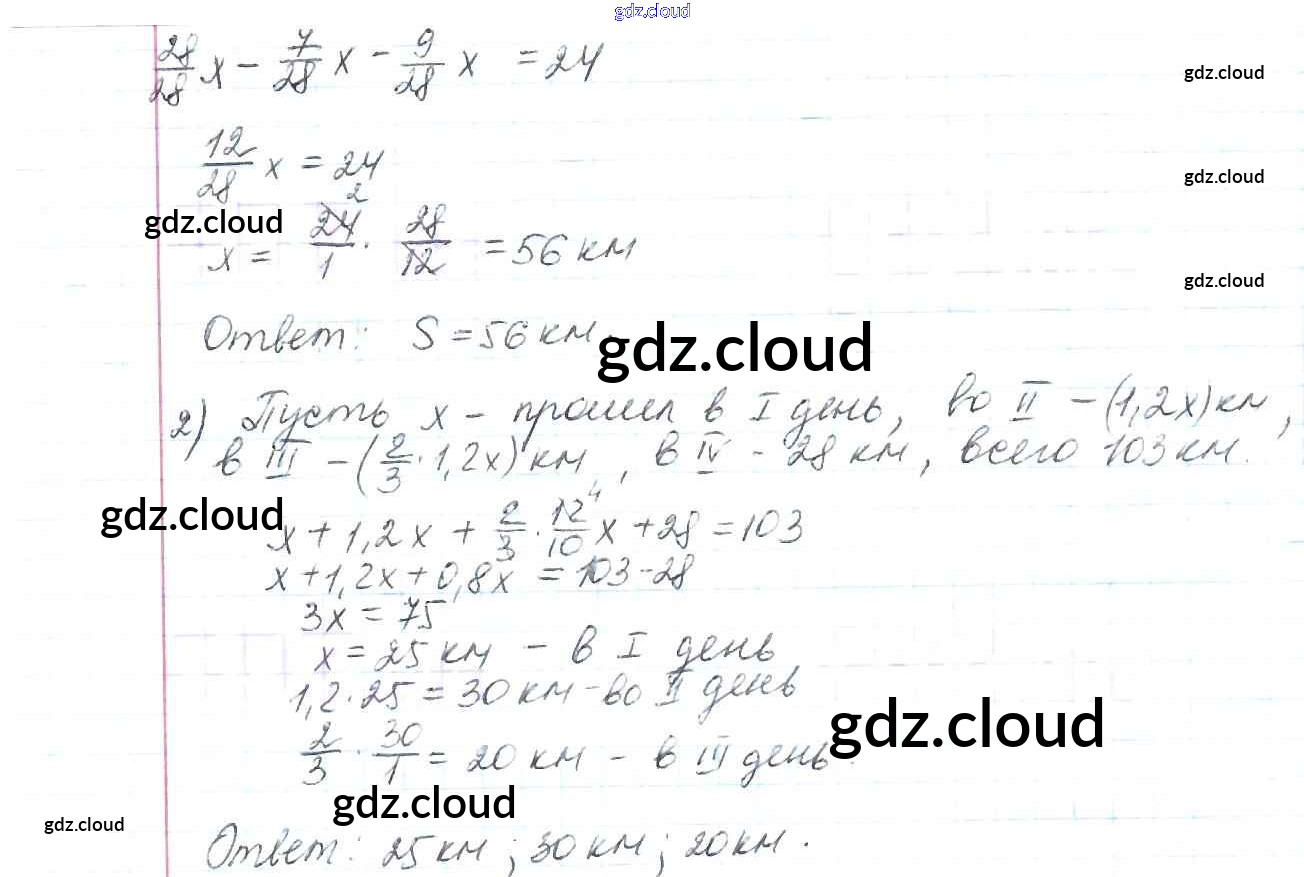 gdz.cloud
28/28 x - 7/28 x - 9/28 x = 24
gdz.cloud
12/28 x = 24
gdz.cloud
gdz.cloud
2
x = 24/1 · 28/12 = 56 км
gdz.cloud
Ответ: S = 56 км.
gdz.cloud
2) Пусть x - прошел в I день, во II - (1,2x) км,
в III - (2/3 · 1,2x) км, в IV - 28 км, всего 103 км.
gdz.cloud
4
x + 1,2x + 2/3 · 12/10 x + 28 = 103
x + 1,2x + 0,8x = 103 - 28
3x = 75
x = 25 км - в I день,
1,2 · 25 = 30 км - во II день
gdz.cloud
2/3 · 30/1 = 20 км - в III день
gdz.cloud
gdz.cloud
Ответ: 25 км; 30 км; 20 км.